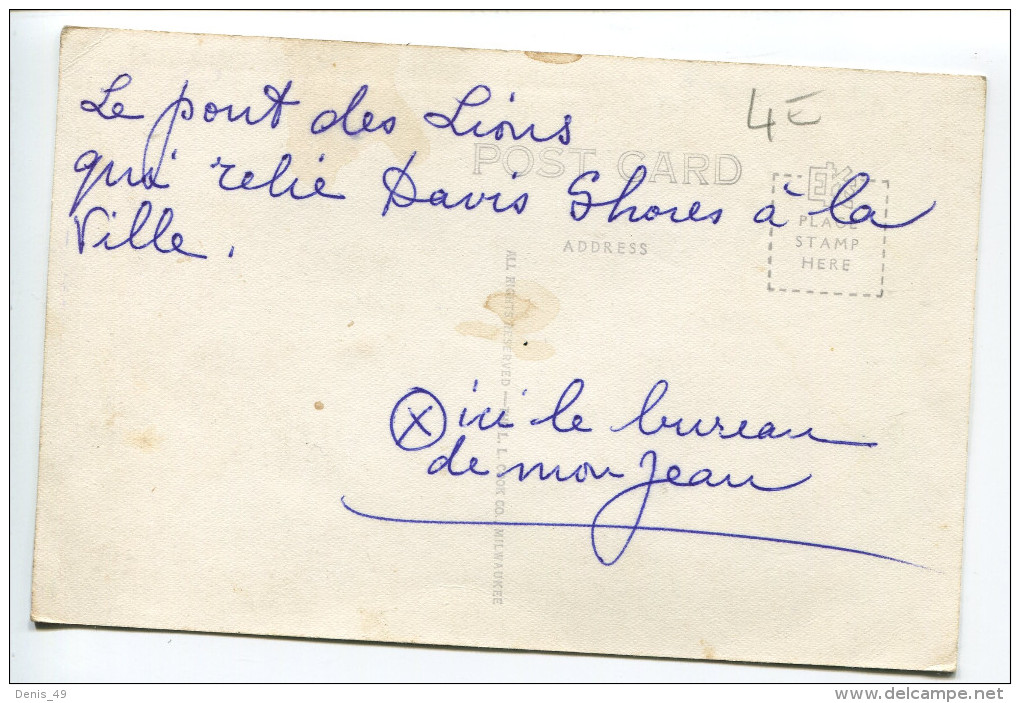 Le pont des Lions
qui relie Davis Shores à la
Ville.
4E
POST CARD
ADDRESS
PLACE
STAMP
HERE
EKC
ALL RIGHTS RESERVED — L. L. COOK CO., MILWAUKEE
X ici le bureau
de mon Jean
Denis_49
www.delcampe.net